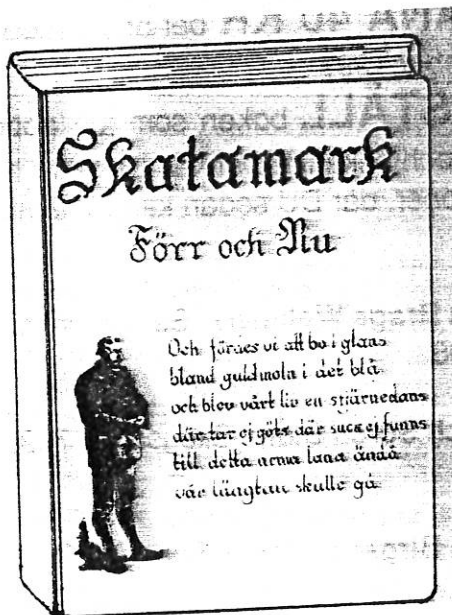 Skatamark
Förr och Nu
Och fördes vi att bo i glans
bland guldmoln i det blå
och blev vårt liv en stjärnedans
där tår ej göts där suck ej funns
till detta arma land ändå
vår längtan skulle gå